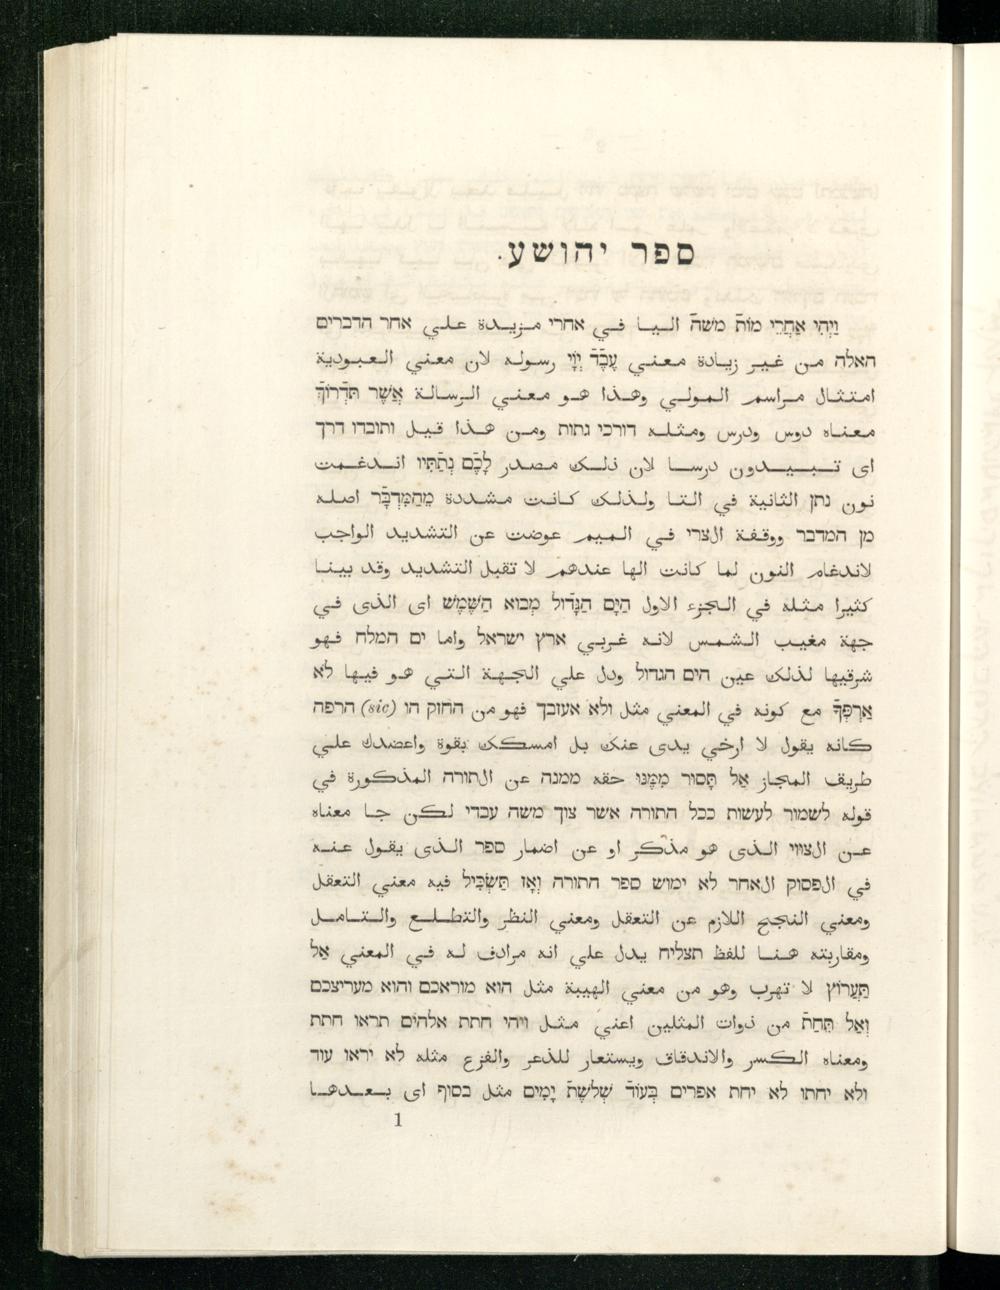 ספר יהושע.
וַיְהִי אַחֲרֵי מוֹת משה اليا في אחרי مزيدة علي אחר הדברים
האלה من غير زيادة معني עֶבֶד יְוָי رسوله لان معني العبودية
امتثال مراسم المولي وهذا هو معني الرسالة אֲשֶׁר תִּדְרוֹךְ
معناه دوس ودرس ومثله דורכי גתות ومن هذا قيل ותובדו דרך
اى تبيدون درسا لان ذلك مصدر לָכֶם נְתַתִּיו اندغمت
نون נתן الثانية في التا ولذلك كانت مشددة מֵהַמִּדְבָּר اصله
מן המדבר ووقفة الצרי في الميم عوضت عن التشديد الواجب
لاندغام النون لما كانت الها عندهم لا تقبل التشديد وقد بينا
كثيرا مثله في الجزء الاول הַיָּם הַגָּדוֹל מְבוֹא הַשָּׁמֶשׁ اى الذى في
جهة مغيب الشمس لانه غربي ארץ ישראל واما ים המלח فهو
شرقيها لذلك عين הים הגדול ودل علي الجهة التي هو فيها לֹא
אַרְפְּךָ مع كونه في المعني مثل ולא אעזבך فهو من החזק הו (sic) הרפה
كانه يقول لا ارخي يدى عنك بل امسكك بقوة واعضدك علي
طريف المجاز אַל תָּסוּר מִמֶּנּוּ حقه ממנה عن الתורה المذكورة في
قوله לשמור לעשות ככל התורה אשר צוך משה עבדי لكن جا معناه
عن الצווי الذى هو مذكر او عن اضمار ספר الذى يقول عنه
في الפסוק الאחר לא ימוש ספר התורה וְאָז תַּשְׂכִּיל فيه معني التعقل
ومعني النجح اللازم عن التعقل ومعني النظر والتطلع والتامل
ومقاربته هنا للفظ תצליח يدل علي انه مرادف له في المعني אַל
תַּעֲרוֹץ لا تهرب وهو من معني الهيبة مثل הוא מוראכם והוא מעריצכם
וְאַל תֵּחָת من ذوات المثلين اعني مثل ויהי חתת אלהים תראו חתת
ومعناه الكسر والاندقاق ويستعار للذعر والفزع مثله לא יראו עוד
ולא יחתו לא יחת אפרים בְּעוֹד שְׁלֹשֶׁת יָמִים مثل בסוף اى بعدها
1